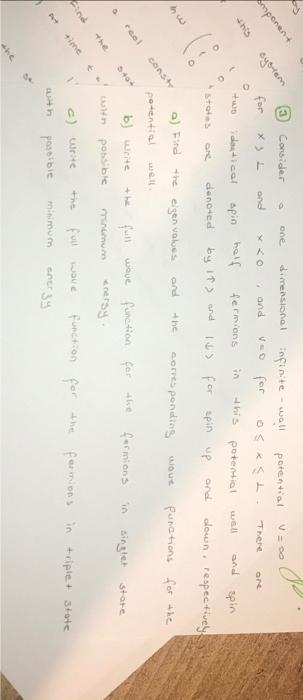 ③ Consider a one dimensional infinite-wall potential V=∞
for x>L and x<0, and V=0 for 0≤x≤L. There are
two identical spin half fermions in this potential well and spin
states are denoted by |↑> and |↓> for spin up and down, respectively.
a) Find the eigenvalues and the corresponding wave functions for the
potential well.
b) Write the full wave function for the fermions in singlet state
with possible minimum energy.
c) Write the full wave function for the fermions in triplet state
with possible minimum energy
omponent
this
system
ħw
real
const
Find the
time
the